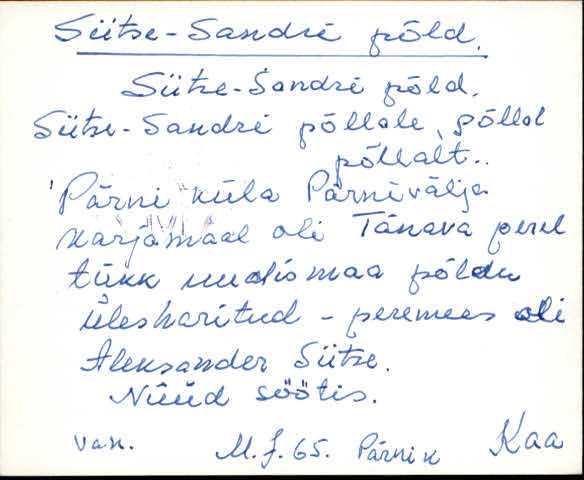 Siitse-Sandri põld.
Siitse-Sandri põld.
Siitse-Sandri põllale, põllal
põllalt..
'Pärni küla Pärnivälja
karjamaal oli Tänava perel
tükk uudismaa põldu
ülesharitud - peremees oli
Aleksander Siitse.
Nüüd söötis.
van. M.J.65. Pärni k Kaa